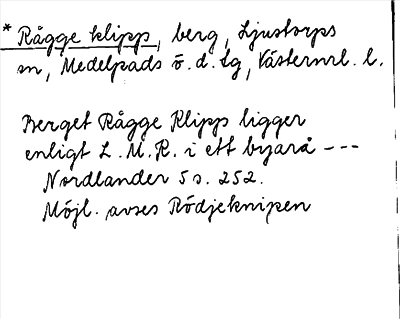 * Rågge klipp, berg, Ljustorps
sn, Medelpads ö. d. tg, Västernrl. l.
Berget Rågge Klipp ligger
enligt L. M. R. i ett byarå ---
Nordlander 5 s. 252.
Möjl. avses Rödjeknipen